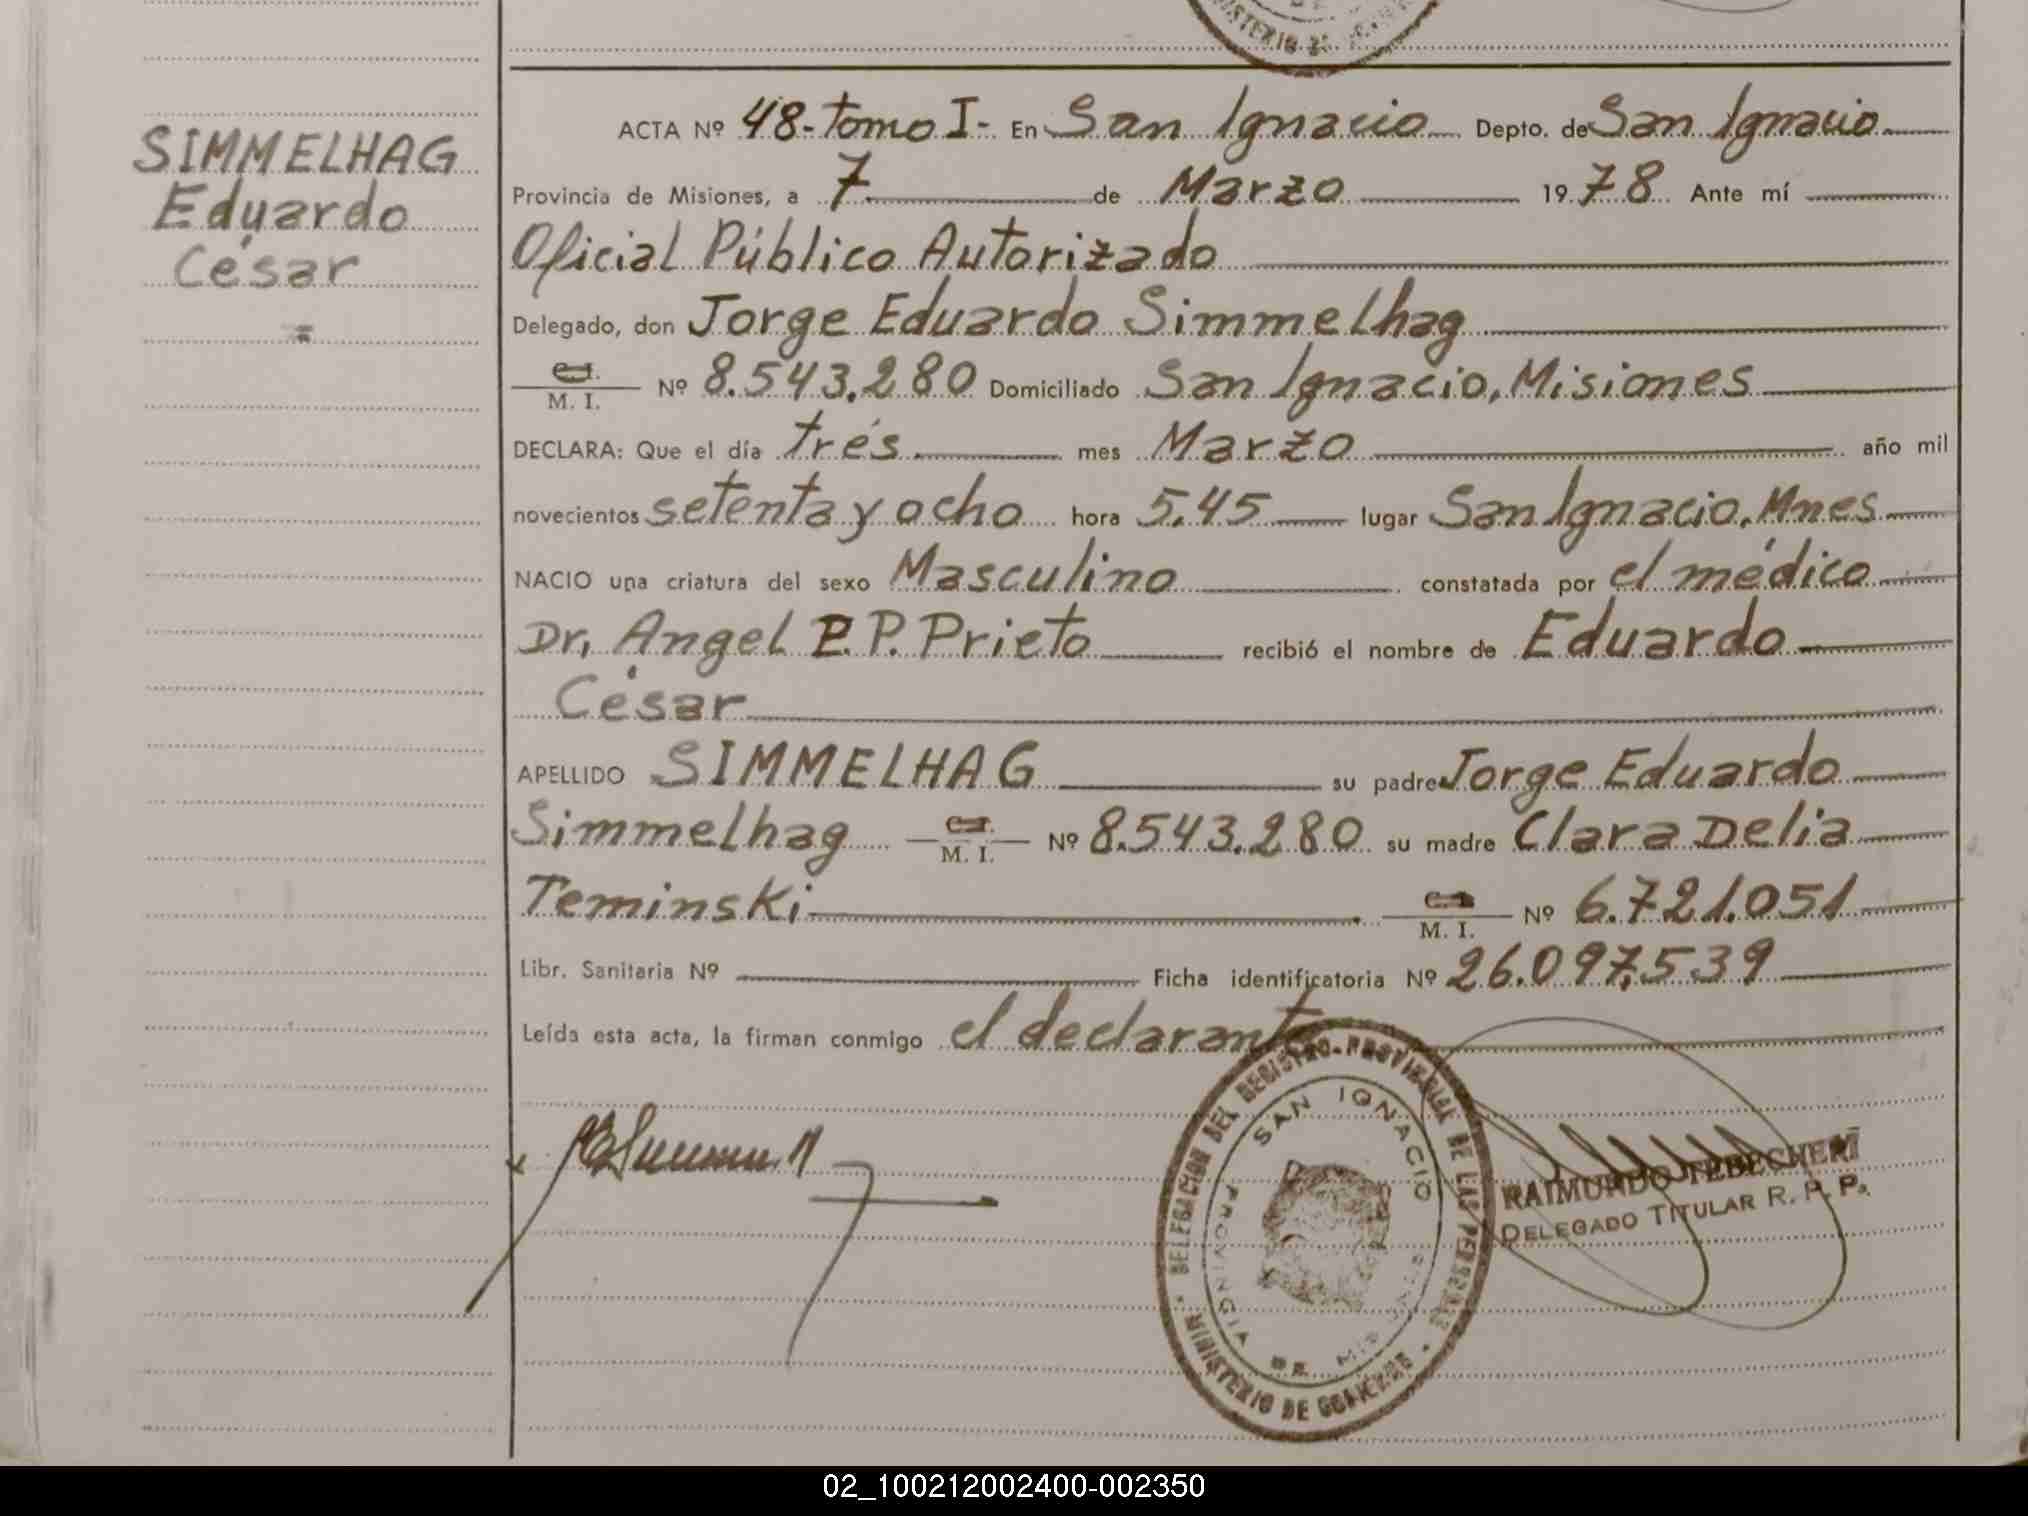 MINISTERIO DE
ACTA Nº 48-Tomo I- En San Ignacio Depto. de San Ignacio
SIMMELHAG
Eduardo
César
Provincia de Misiones, a 7 de Marzo 1978 Ante mí
Oficial Público Autorizado
Delegado, don Jorge Eduardo Simmelhag
C.I.
M. I. Nº 8.543.280 Domiciliado San Ignacio, Misiones
DECLARA: Que el día trés mes Marzo año mil
novecientos setenta y ocho hora 5.45 lugar San Ignacio, Mnes
NACIO una criatura del sexo Masculino constatada por el médico
Dr. Angel P. P. Prieto recibió el nombre de Eduardo
César
APELLIDO SIMMELHAG su padre Jorge Eduardo
Simmelhag C.I. M. I. Nº 8.543.280 su madre Clara Delia
Teminski C.I. M. I. Nº 6.721.051
Libr. Sanitaria Nº Ficha identificatoria Nº 26.097.539
Leída esta acta, la firman conmigo el declarante
DELEGACION DEL REGISTRO PROVINCIAL DE LAS PERSONAS
SAN IGNACIO
PROVINCIA DE MISIONES
MINISTERIO DE GOBIERNO
RAIMUNDO
DELEGADO TITULAR R. P. P.
02_100212002400-002350